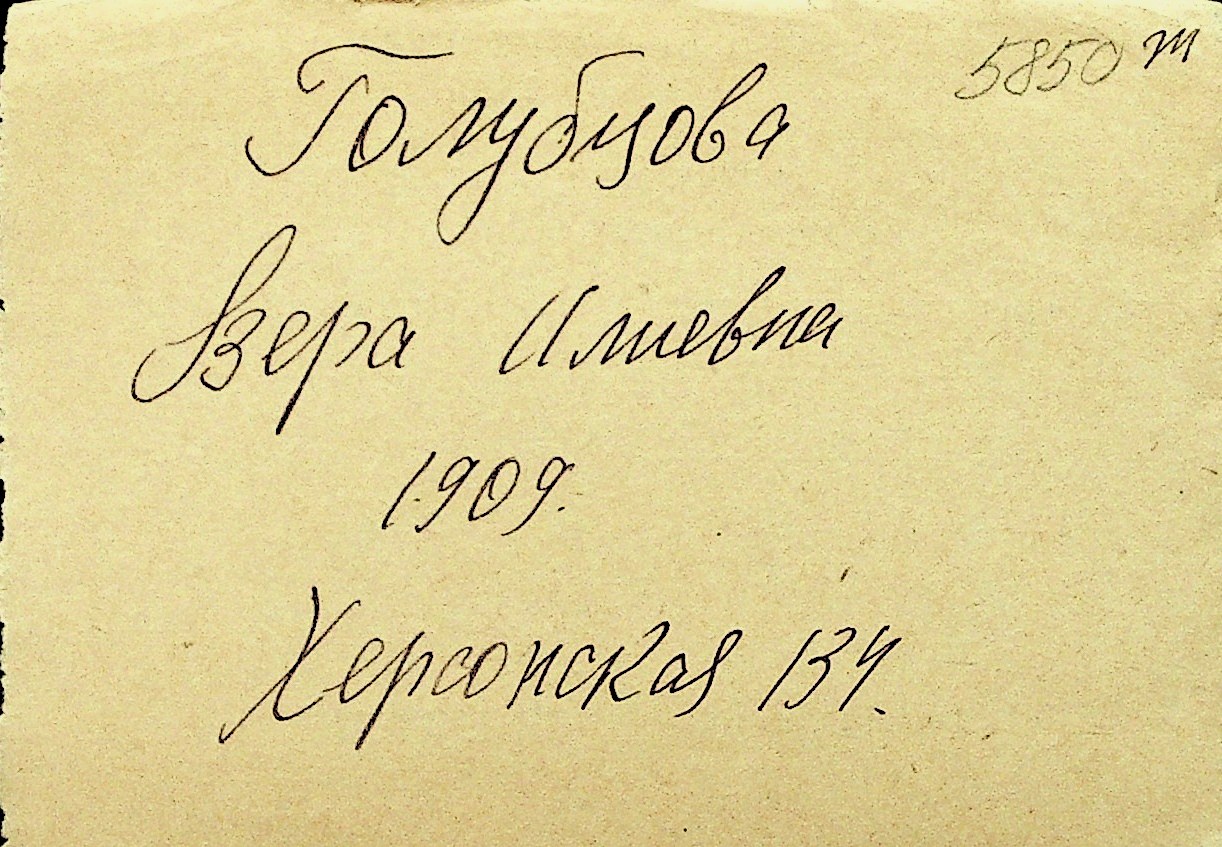 5850 т
Голубцова
Вера Илиевна
1909.
Херсонская 134.